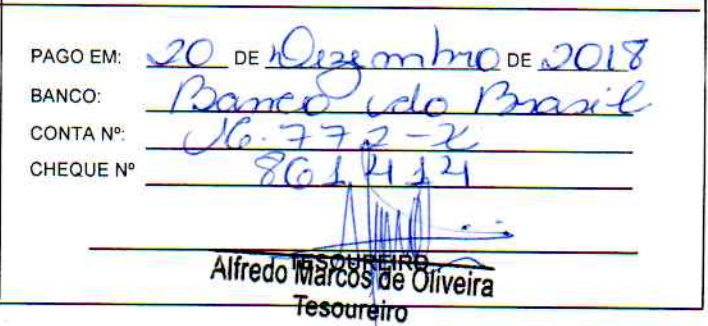 PAGO EM: 20 DE Dezembro DE 2018
BANCO: Banco do Brasil
CONTA Nº: 16.772-X
CHEQUE Nº 861414
TESOUREIRO
Alfredo Marcos de Oliveira
Tesoureiro